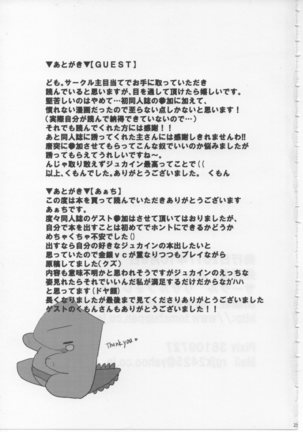 ▼あとがき▼【GUEST】
ども。サークル主目当てでお手に取っていただき
読んでいると思いますが、目を通して頂けたら嬉しいです。
堅苦しいのはやめて…初同人誌の参加に加えて、
慣れない漫画だったので至らない点しかないと思います!
(実際自分が読んで成長できていないので…)
それでも読んでくれた方には感謝!!
あと同人誌に誘ってくれた主さんには感謝しきれませんわ!!
唐突に参加させてもらってこんな奴でいいのか悩みましたが
誘ってもらえてうれしいですね〜。
んじゃ取り敢えずジュカイン最高ってことで((
以上、くもんでした。ありがとうございました。 くもん
▼あとがき▼【あぁち】
この度は本を買って読んでいただきありがとうございます
あぁちです。
度々同人誌のゲスト参加はさせて頂いてはおりましたが、
自分で本を出すことは初めてでホントにできるかどうか
めちゃくちゃ不安でした()
出すなら自分の好きなジュカインの本出したいと
思っていたので金銀vcが重なりつつもプレイながら
原稿してました(クズ)
内容も意味不明かと思われそうですがジュカインのえっちな
姿見れたらそれでいいんだ私が満足するだけだからなガハハ
と思っております(ドヤ顔)
長くなりましたが最後まで見てくださりありがとうございました
ゲストのくもんさんもありがとうございました!!
Thank you